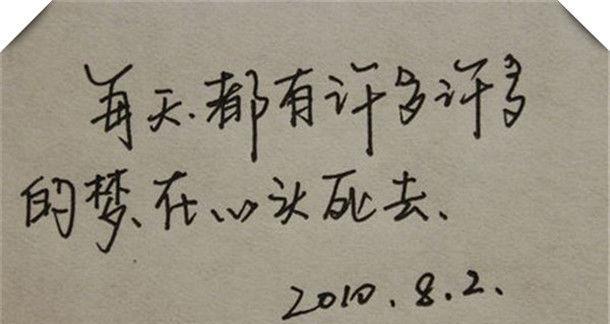 每天.都有许多许多
的梦、在心头死去、
2010.8.2.